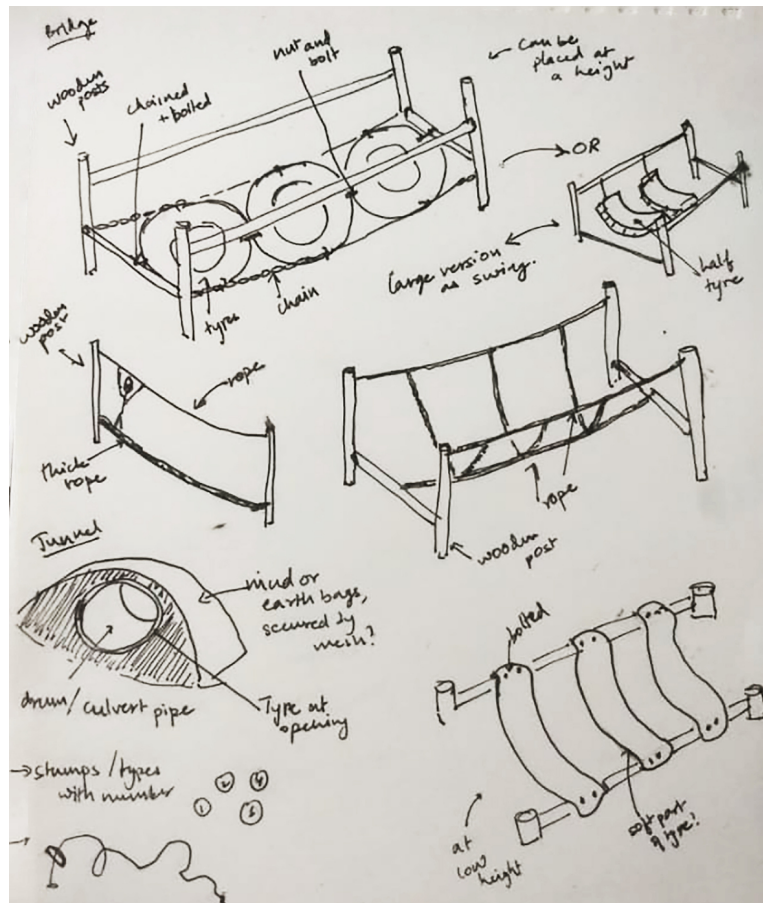 Bridge
wooden
posts
chained
+ bolted
nut and
bolt
← can be
placed at
a height
→ OR
large version
as swing.
half
tyre
tyres
chain
wooden
post
rope
thick
rope
rope
wooden
post
Tunnel
mud or
earth bags,
secured by
mesh?
drum/culvert pipe
Type at
opening
→ stumps/types
with number
1 2 3 4
bolted
at
low
height
soft part
of tyre?